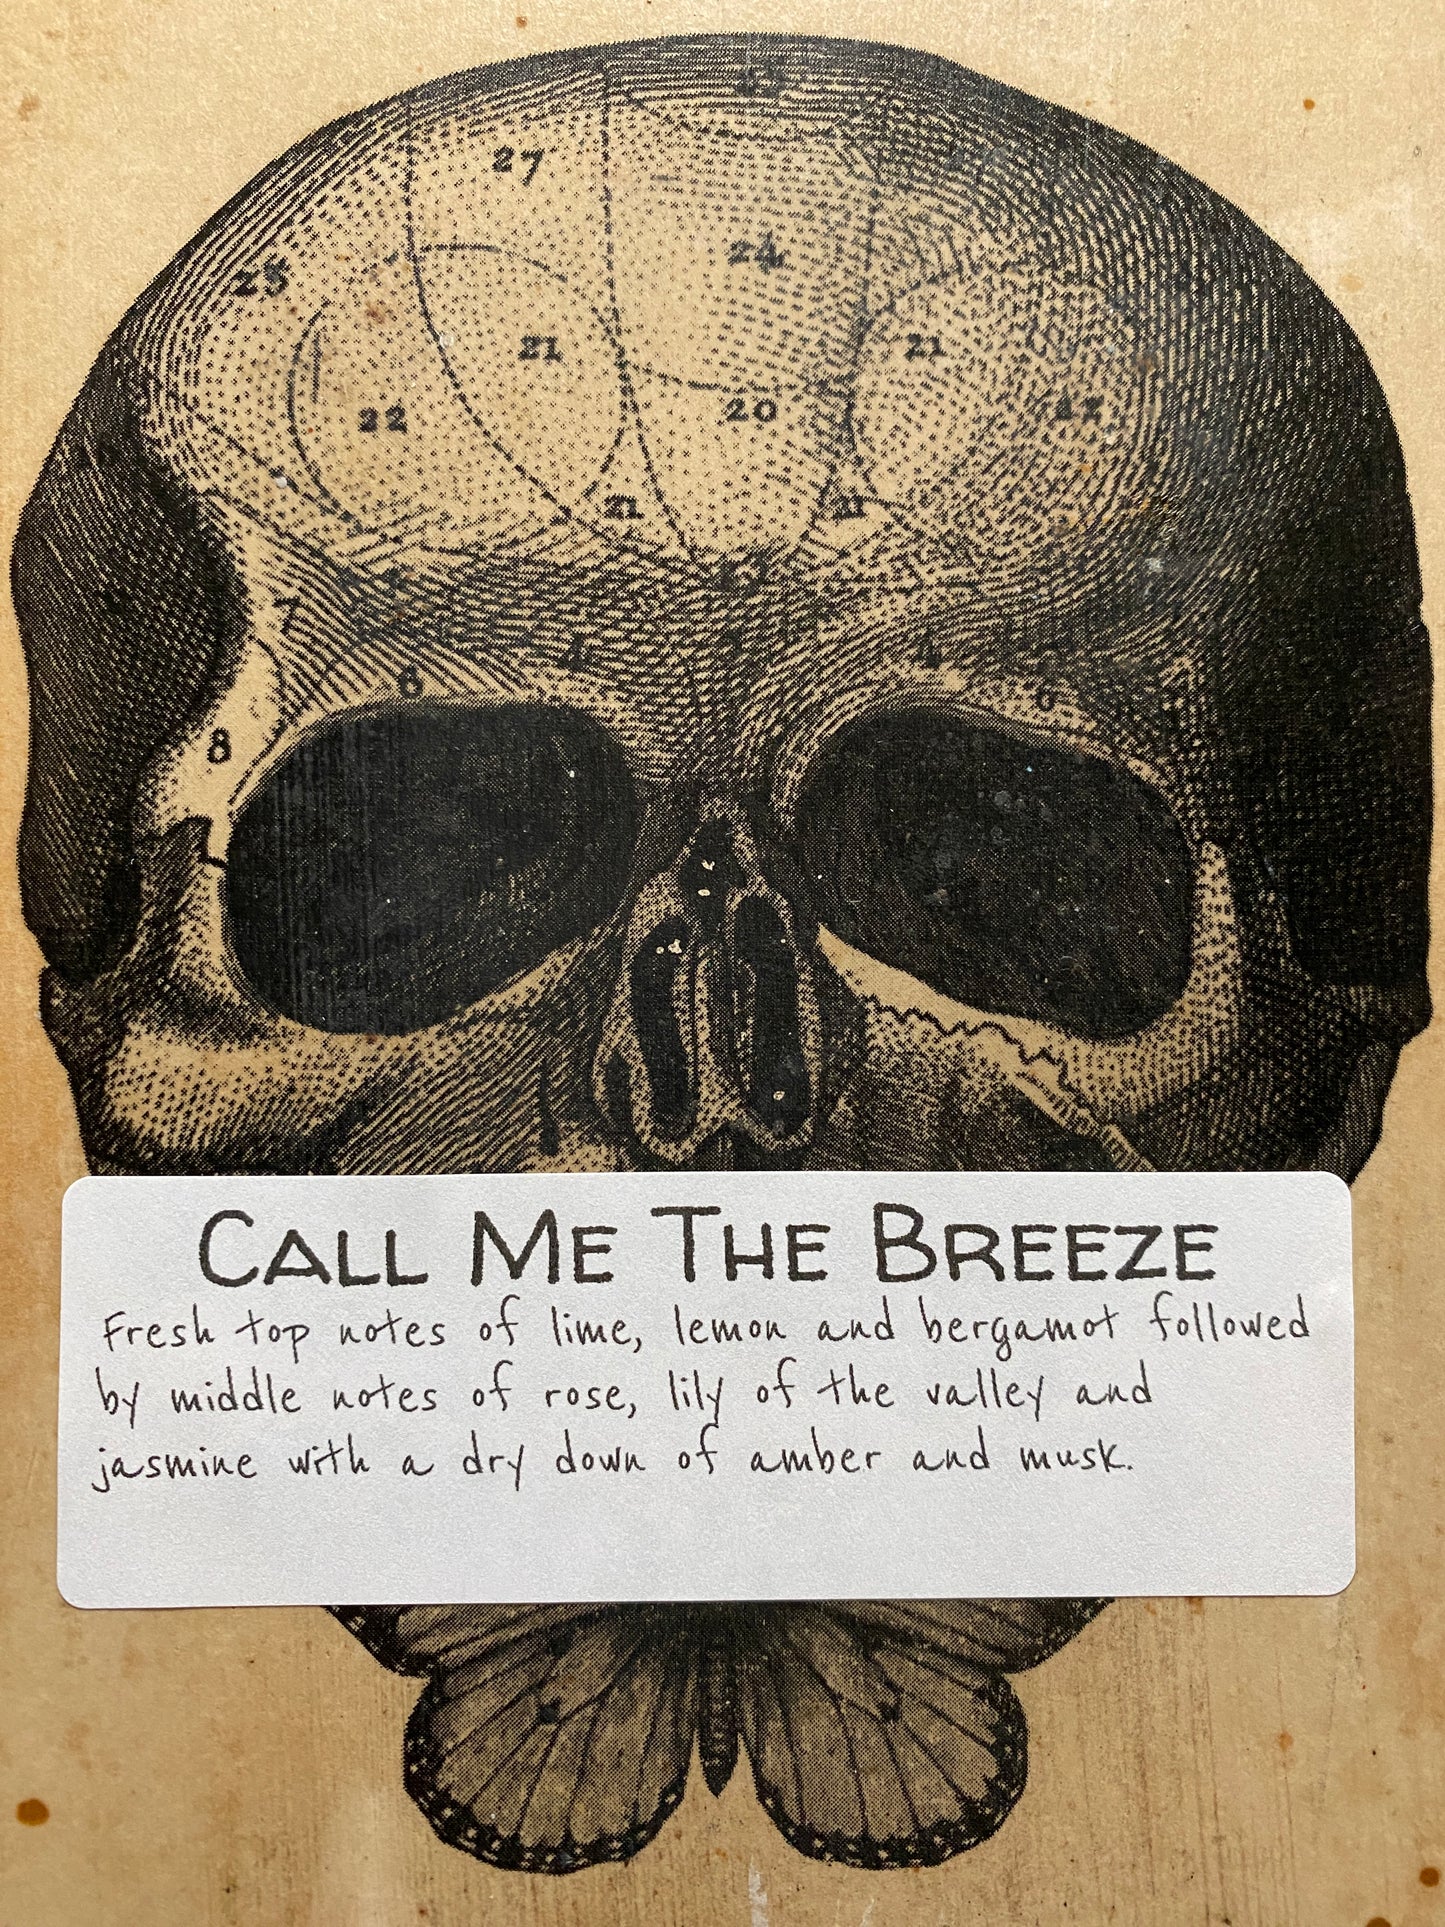 27
24
23
21
21
22
20
21
7
6
6
8
CALL ME THE BREEZE
Fresh top notes of lime, lemon and bergamot followed
by middle notes of rose, lily of the valley and
jasmine with a dry down of amber and musk.